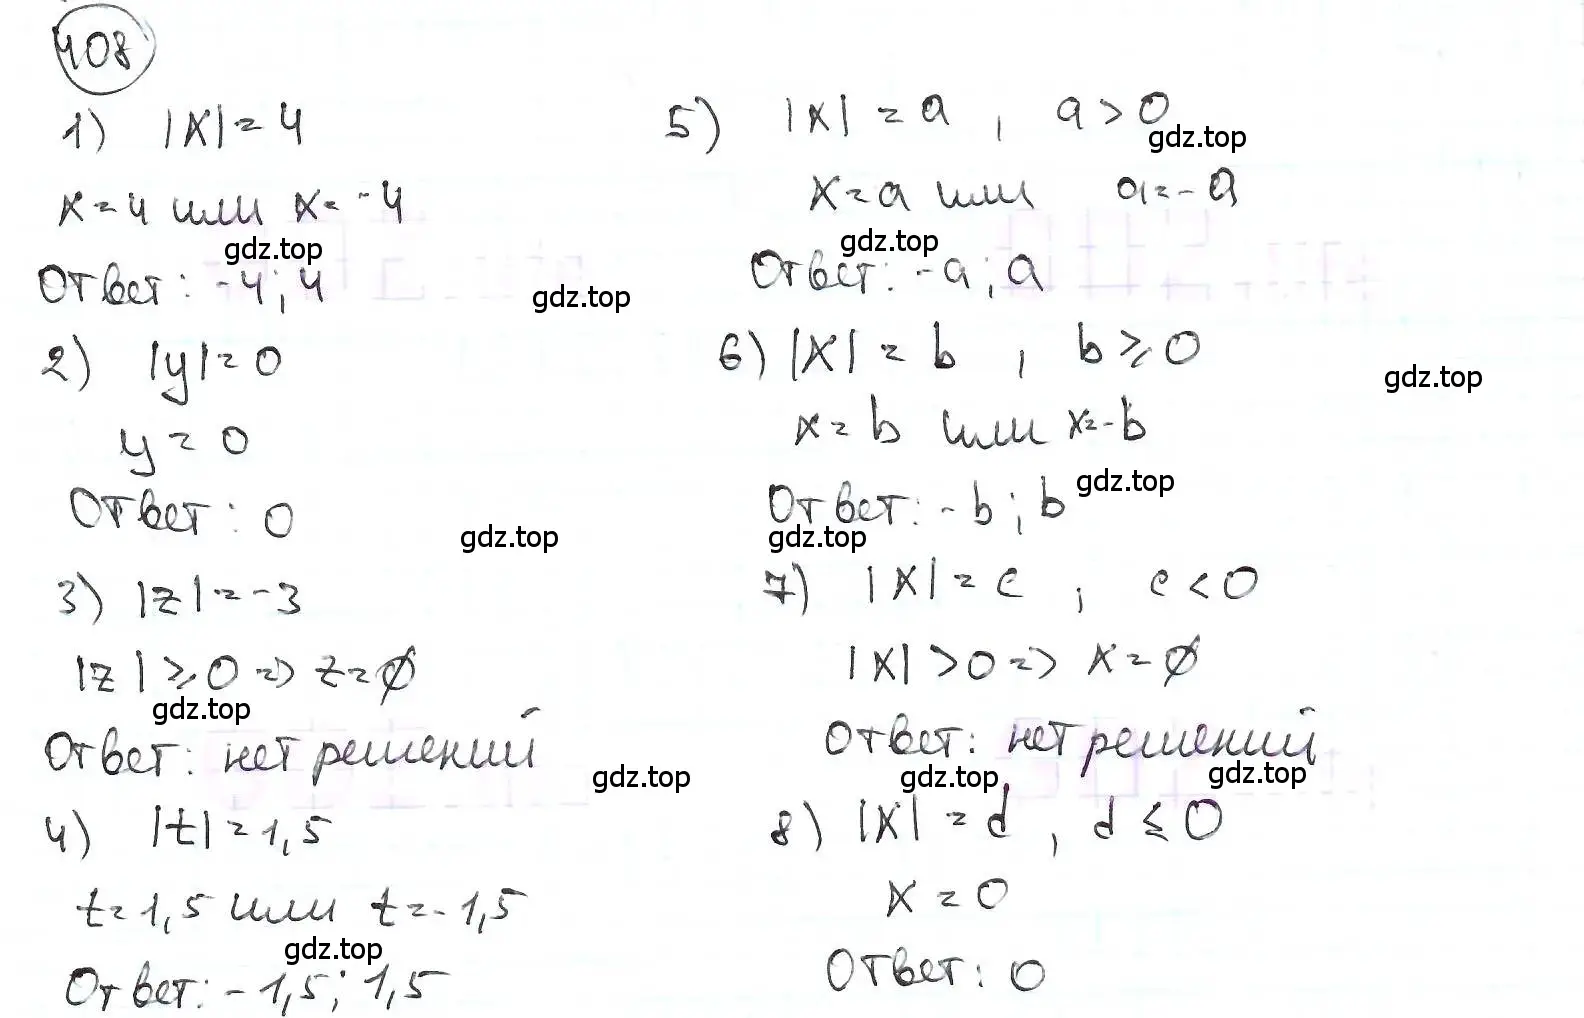 408
1) |x| = 4
x = 4 или x = -4
gdz.top
Ответ: -4; 4
gdz.top
2) |y| = 0
y = 0
Ответ: 0
gdz.top
3) |z| = -3
|z| ⩾ 0 => z = ∅
gdz.top
Ответ: нет решений
gdz.top
4) |t| = 1,5
t = 1,5 или t = -1,5
gdz.top
Ответ: -1,5; 1,5
5) |x| = a , a > 0
gdz.top
x = a или a = -a
gdz.top
Ответ: -a; a
6) |x| = b , b ⩾ 0
gdz.top
x = b или x = -b
gdz.top
Ответ: -b; b
gdz.top
7) |x| = c ; c < 0
|x| > 0 => x = ∅
Ответ: нет решений
gdz.top
gdz.top
8) |x| = d , d ⩽ 0
x = 0
Ответ: 0